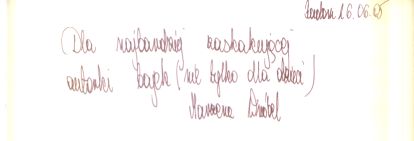 16.06.05
Dla najbardziej zaskakującej
autorki bajek (nie tylko dla dzieci)
Marzena